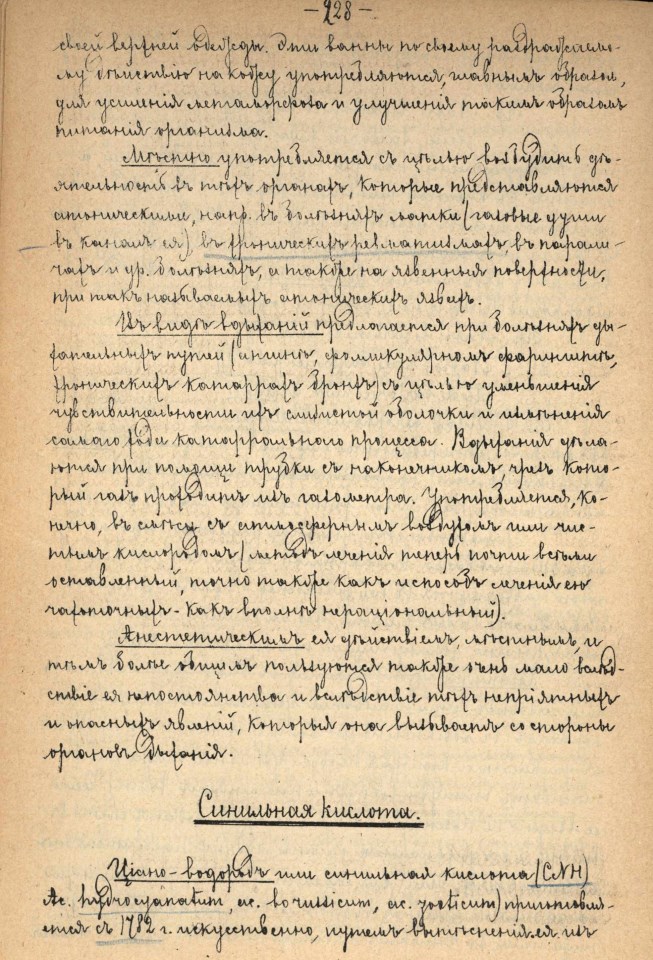 — 228 —
своей верхней одежды. Эти ванны по своему раздражаемо-
му дѣйствію на кожу употребляются, главнымъ образом,
для усиленія метаморфоза и улучшенія такимъ образомъ
питанія организма.
Мѣстно употребляется съ цѣлью возбудить дѣ-
ятельность въ тѣхъ органахъ, которые представляются
атоническими, напр. въ болѣзняхъ матки (газовые души
въ каналъ ея), въ хроническихъ ревматизмахъ, въ парали-
чахъ и др. болѣзняхъ, а также на язвенныя поверхности,
при такъ называемыхъ атоническихъ язвахъ.
Въ видѣ вдыханій предлагается при болѣзняхъ ды-
хательныхъ путей (ангинѣ, фолликулярномъ фарингитѣ,
хроническихъ катаррахъ бронх) съ цѣлью уменьшенія
чувствительности ихъ слизистой оболочки и измѣненія
самаго хода катаррального процесса. Вдыханія дѣла-
ются при помощи трубки съ наконечникомъ, чрезъ кото-
рый газъ проходитъ изъ газометра. Употребляется, ко-
нечно, въ смѣси съ атмосфернымъ воздухомъ или чис-
тымъ кислородомъ (методъ леченія теперь почти всѣми
оставленный, точно также какъ и способъ леченія ею
чахоточныхъ - какъ вполнѣ нераціональный).
Анестетическимъ ея дѣйствіемъ, мѣстнымъ, и
тѣмъ болѣе общимъ пользуются также очень мало вслѣд-
ствіе ея непостоянства и вслѣдствіе тѣхъ непріятныхъ
и опасныхъ явленій, которыя она вызываетъ со стороны
органовъ дыханія.
Синильная кислота.
Ціано-водородъ или синильная кислота (CNH)
Ac. hydrocyanatum, ac. borussicum, ac. zooticum) приготовля-
ется съ 1782 г. искусственно, путемъ вытѣсненія ея изъ